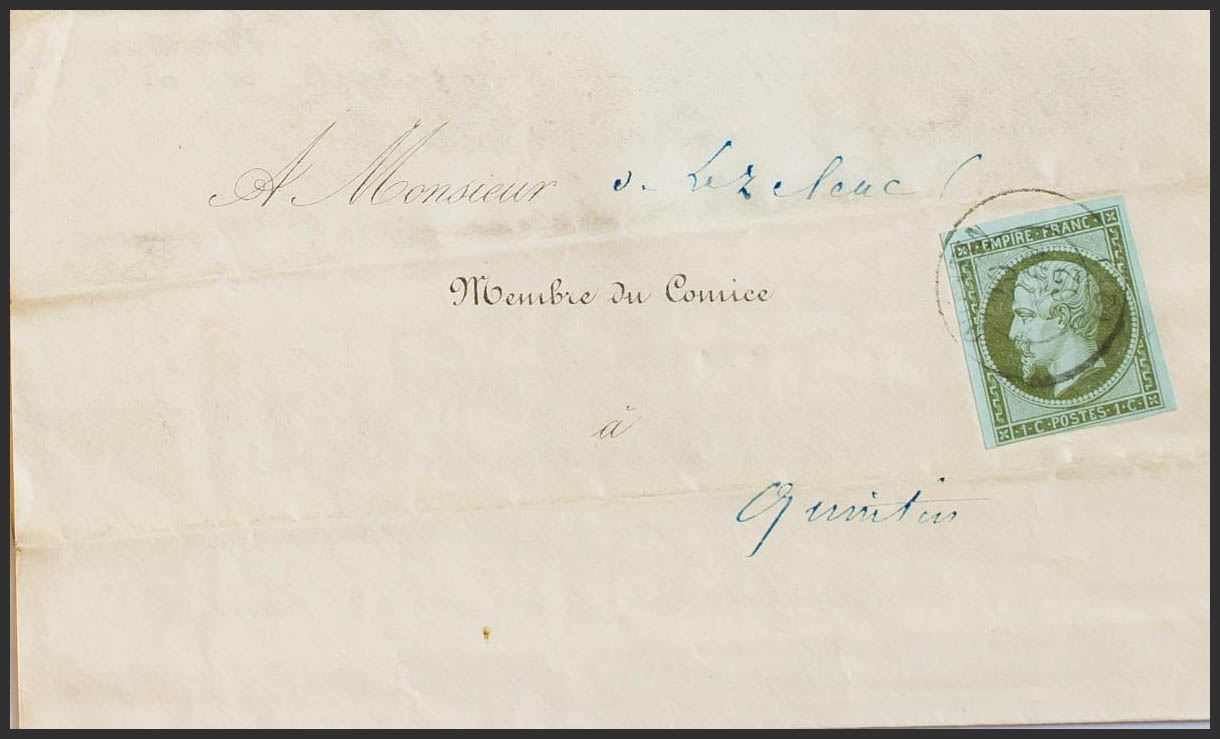 A Monsieur
EMPIRE·FRANC·
Membre du Comice
·1·C·POSTES·1·C·
à
Quintin